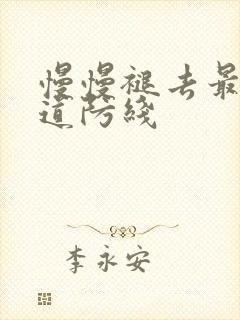 慢慢褪去最
道防綫
李永安